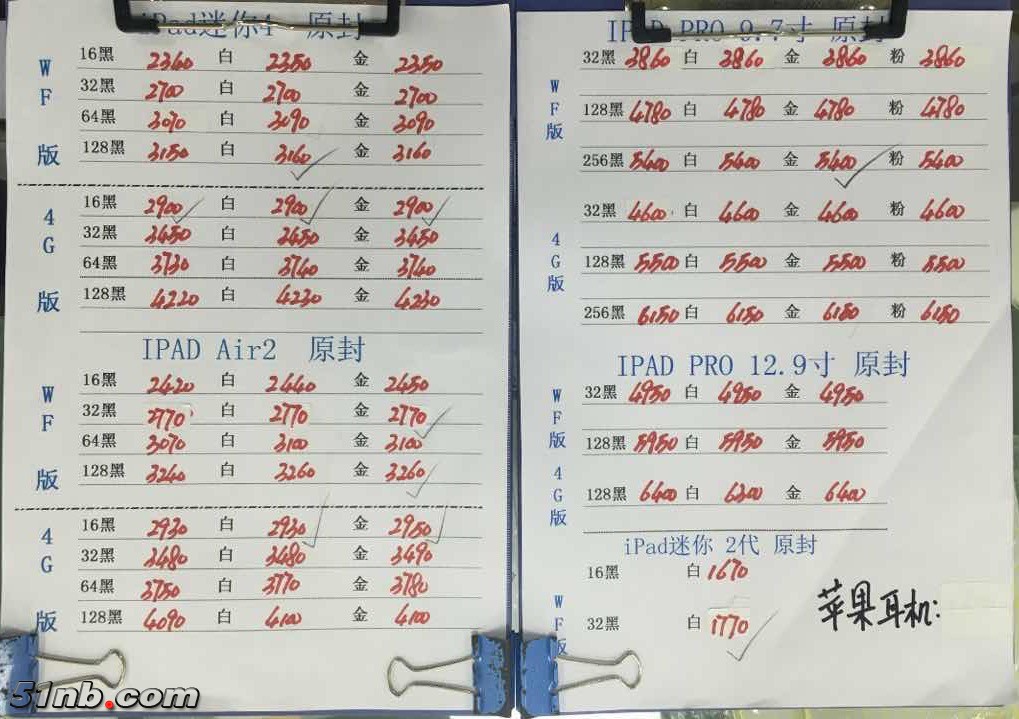 iPad迷你4 原封
WF版
16黑 2340 白 2350 金 2350
32黑 2700 白 2700 金 2700
64黑 3070 白 3090 金 3090
128黑 3150 白 3160 金 3160
4G版
16黑 2900 白 2900 金 2900
32黑 3450 白 3450 金 3450
64黑 3730 白 3740 金 3740
128黑 4220 白 4230 金 4230
IPAD Air2 原封
WF版
16黑 2420 白 2440 金 2450
32黑 2770 白 2770 金 2770
64黑 3070 白 3100 金 3100
128黑 3240 白 3260 金 3260
4G版
16黑 2930 白 2930 金 2950
32黑 3480 白 3480 金 3490
64黑 3750 白 3770 金 3780
128黑 4090 白 4100 金 4100
IPAD PRO 9.7寸 原封
WF版
32黑 3860 白 3860 金 3860 粉 3860
128黑 4780 白 4780 金 4780 粉 4780
256黑 5400 白 5400 金 5400 粉 5400
4G版
32黑 4600 白 4600 金 4600 粉 4600
128黑 5500 白 5500 金 5500 粉 5500
256黑 6150 白 6150 金 6150 粉 6150
IPAD PRO 12.9寸 原封
WF版
32黑 4950 白 4950 金 4950
128黑 5950 白 5950 金 5950
4G版
128黑 6400 白 6300 金 6400
iPad迷你 2代 原封
WF版
16黑 白 1670
32黑 白 1770
苹果耳机:
51nb.com